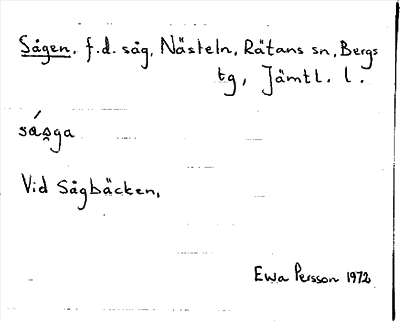 Sågen, f.d. såg, Nästeln, Rätans sn, Bergs
tg, Jämtl. l.
Vid Sågbäcken.
Ewa Persson 1972